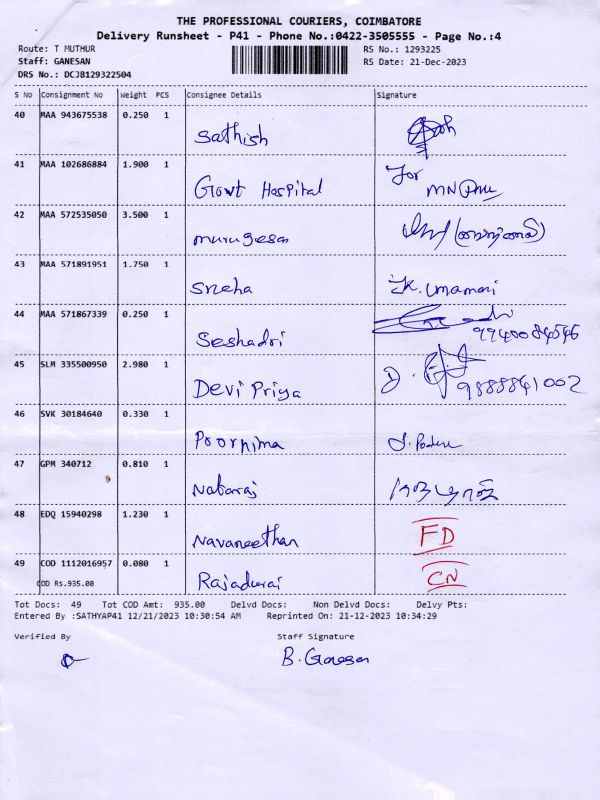 THE PROFESSIONAL COURIERS, COIMBATORE
Delivery Runsheet - P41 - Phone No.:0422-3505555 - Page No.:4
Route: T MUTHUR RS No.: 1293225
Staff: GANESAN RS Date: 21-Dec-2023
DRS No.: DCJB129322504
S No Consignment No Weight PCS Consignee Details Signature
40 MAA 943675538 0.250 1 Sathish
41 MAA 102686884 1.900 1 Govt Hospital For
42 MAA 572535050 3.500 1 murugesan
43 MAA 571891951 1.750 1 Sneha K. Umamani
44 MAA 571867339 0.250 1 Seshadri 9940084546
45 SLM 335500950 2.980 1 Devi Priya D. 9888841002
46 SVK 30184640 0.330 1 Poornima
47 GPM 340712 0.810 1 Nataraj
48 EDQ 15940298 1.230 1 Navaneethan FD
49 COD 1112016957 0.080 1 Rajadurai CN
COD Rs.935.00
Tot Docs: 49 Tot COD Amt: 935.00 Delvd Docs: Non Delvd Docs: Delvy Pts:
Entered By :SATHYAP41 12/21/2023 10:30:54 AM Reprinted On: 21-12-2023 10:34:29
Verified By Staff Signature
B. Ganesan